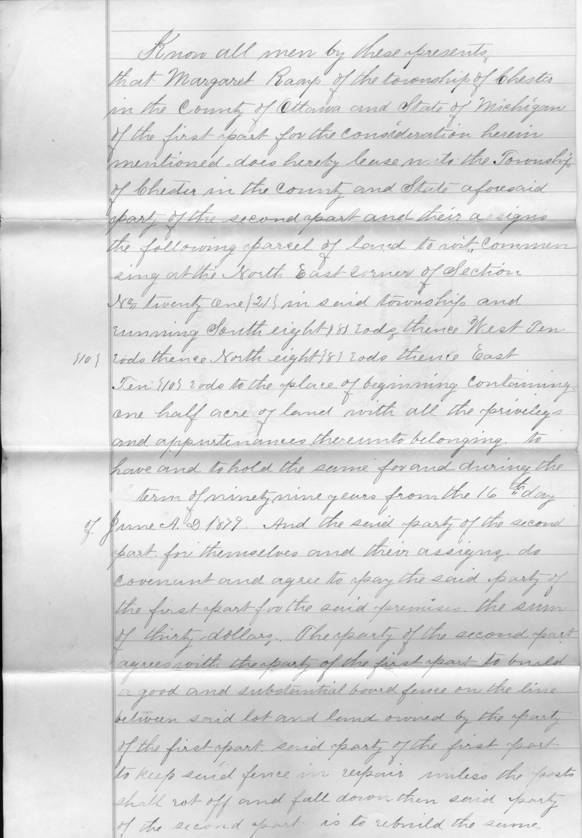 Know all men by these presents,
that Margaret Raap of the township of Chester
in the County of Ottawa and State of Michigan
of the first part for the consideration herein
mentioned does hereby lease unto the Township
of Chester in the County and State aforesaid
party of the second part and their assigns
the following parcel of land to wit, Commen
sing at the North East corner of Section
No twenty one {21} in said township and
running South eight {8} rods thence West Ten
{10} rods thence North eight {8} rods thence East
Ten {10} rods to the place of beginning containing
one half acre of land with all the privilegs
and appurtinances thereunto belonging. to
have and to hold the same for and during the
term of ninety nine years from the 16th day
of June A.D 1879 And the said party of the second
part for themselves and their assigns do
covenant and agree to pay the said party of
the first part for the said premises the sum
of thirty dollars. The party of the second part
agrees with the party of the first part to build
a good and substantial board fence on the line
between said lot and land owned by the party
of the first part said party of the first part
to keep said fence in repair unless the posts
shall rot off and fall down then said party
of the second part is to rebuild the same